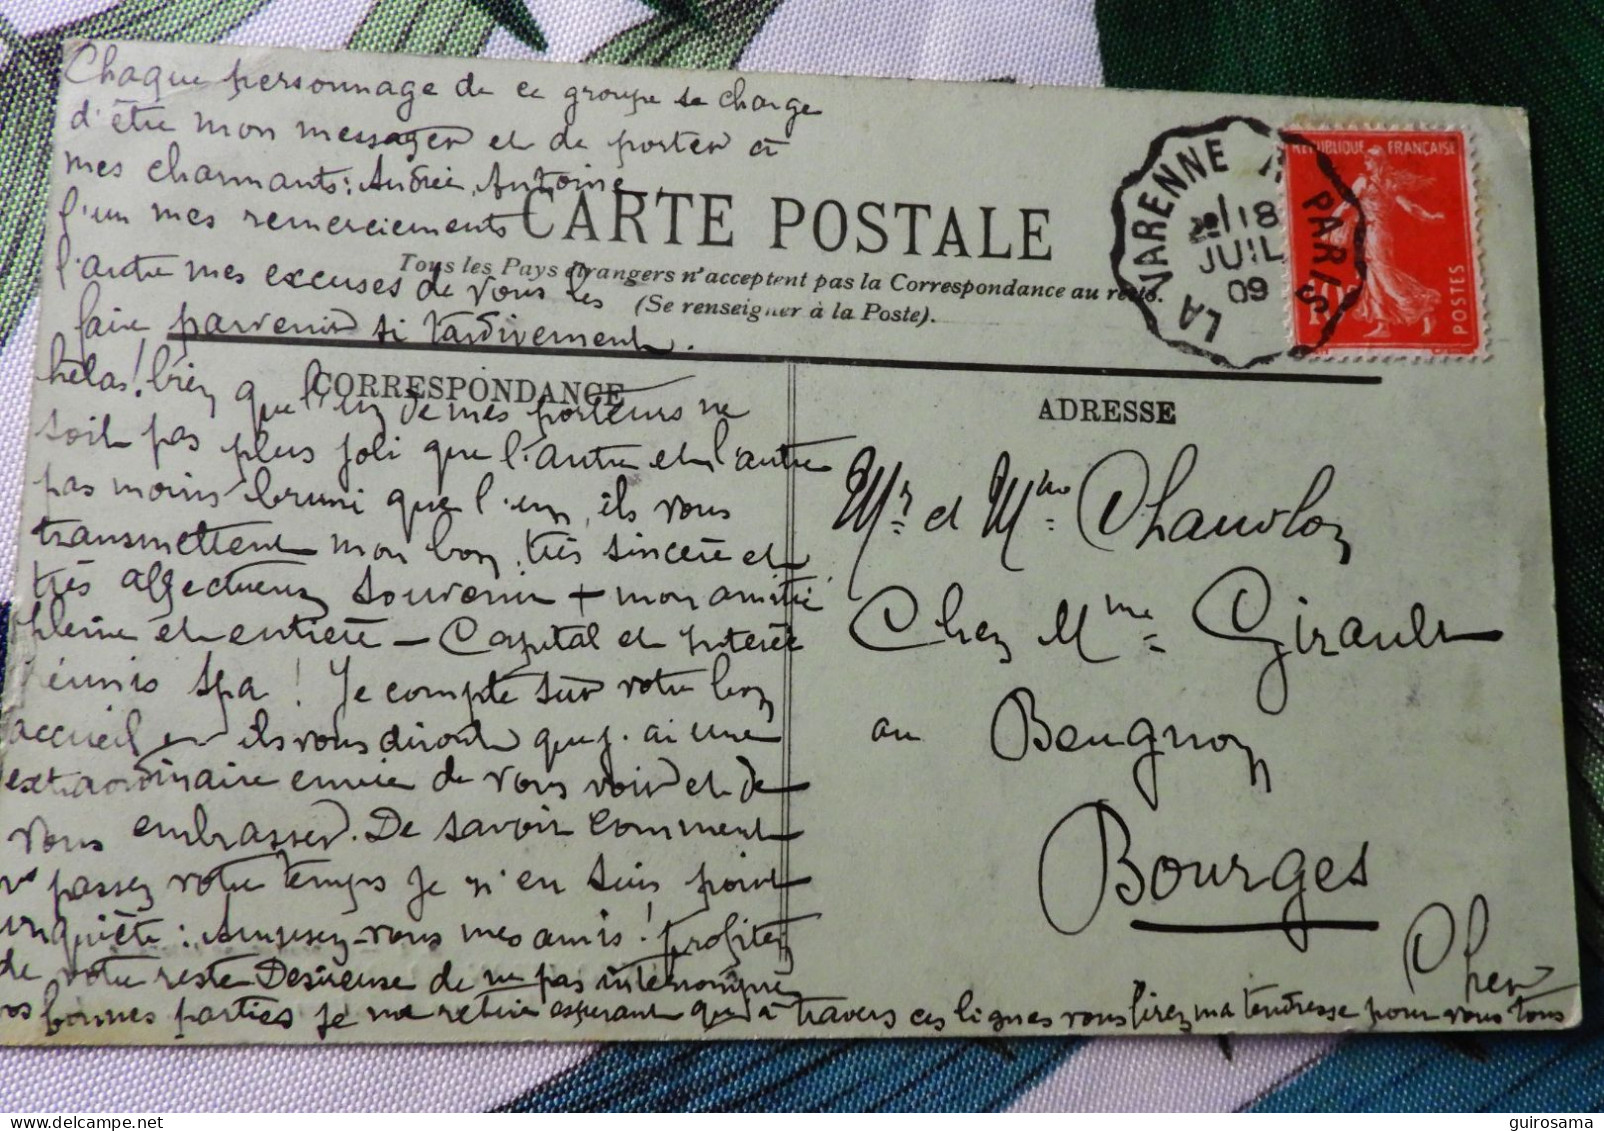 Chaque personnage de ce groupe se charge
d'être mon messager et de porter à
mes charmants : Andrée, Antoine
l'un mes remerciements
l'autre mes excuses de vous les
faire parvenir si tardivement.
CARTE POSTALE
Tous les Pays étrangers n'acceptent pas la Correspondance au recto.
(Se renseigner à la Poste).
LA VARENNE A PARIS
18
JUIL
09
REPUBLIQUE FRANÇAISE
POSTES
10
CORRESPONDANCE
hélas ! bien que l'un de mes porteurs ne
soit pas plus joli que l'autre et l'autre
pas moins bruni que l'un, ils vous
transmettent mon bon, très sincère et
très affectueux souvenir + mon amitié
pleine et entière — Capital et intérêt
réunis spa ! Je compte sur votre bon
accueil et ils vous diront que j'ai une
extraordinaire envie de vous voir et de
vous embrasser. De savoir comment
vs passez votre temps je n'en suis point
inquiète : Amusez-vous mes amis ! profitez
de votre reste Desireuse de ne pas interrompre
vos bonnes parties je me retire esperant qu'à travers ces lignes vous lirez ma tendresse pour vous tous
ADRESSE
Mr. et Mme. Chauvlon
Chez Mme Girault
au Beugnon
Bourges
Cher
guirosama